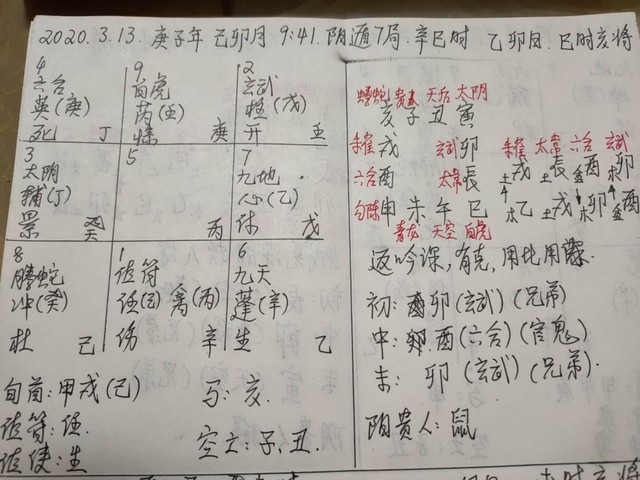 2020.3.13.庚子年 己卯月 9:41.阴遁7局.辛巳时 乙卯日.巳时亥将
4
六合
英(庚)
死 丁
9
白虎
芮(壬)
惊 庚
2
玄武
柱(戊)
开 壬
3
太阴
辅(丁)
景
5
丙
7
九地
心(乙)
休 戊
8
腾蛇
冲(癸)
杜 己
1
值符
任(己) 禽(丙)
伤 辛
6
九天
蓬(辛)
生 乙
旬首:甲戌(己)
值符:任.
值使:生
马:亥.
空亡:子,丑.
螣蛇 贵人 天后 太阴
亥 子 丑 寅
朱雀 戌 玄武 卯
六合 酉 太常 辰
勾陈 申 未 午 巳
青龙 天空 白虎
朱雀 太常 六合 玄武
土戌 土辰 金酉 木卯
木乙 土戌 木卯 金酉
返吟课,有克,用比用
初: 卯(玄武)(兄弟)
中: 酉(六合)(官鬼)
末: 卯(玄武)(兄弟).
阴贵人:鼠